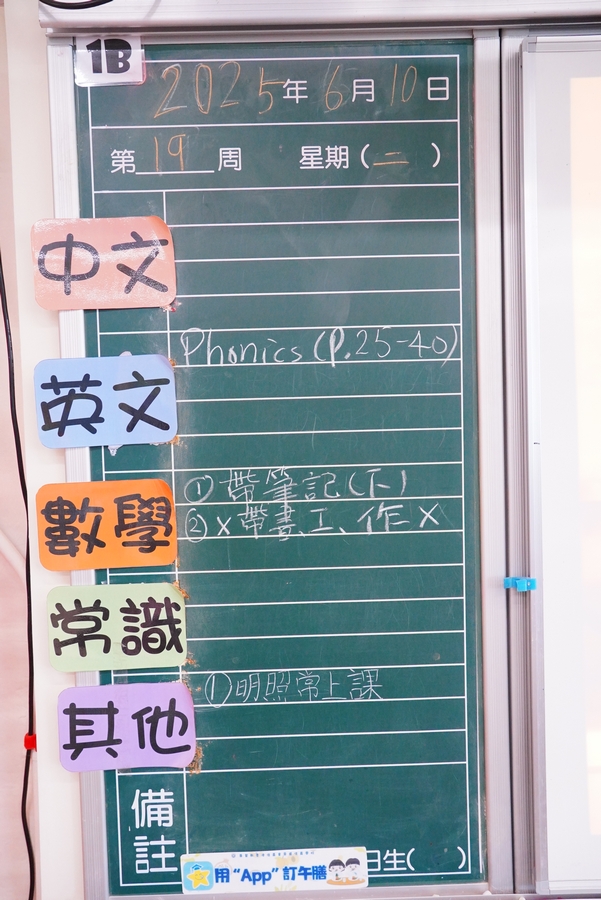 1B
2025年6月10日
第19周 星期(二)
中文
Phonics (P.25-40)
英文
①帶筆記(下)
數學
②×帶書、工、作×
常識
①明照常上課
其他
備註
用“App”訂午膳
日生( )